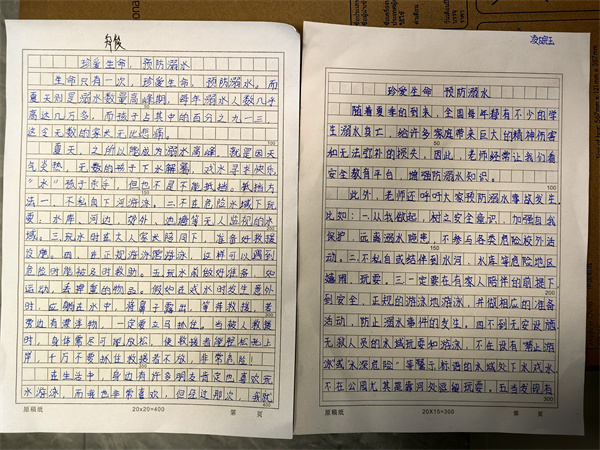 珍爱生命，预防溺水
生命只有一次，珍爱生命，预防溺水。而
夏天则是溺水数量高峰期，每年溺水人数几乎
高达几万多，而孩子占其中的百分之九一三，
这令无数的家长无比悲痛。
夏天，之所以能成为溺水高峰，就是因天
气炎热，无数的孩子下水解暑，戏水寻求快乐，
方法
一、不私自下河游泳。二、不在危险水域下玩
耍，水库，河边，郊外，池塘等无人监视的水
域。三、玩水时在大人家长陪同下，准备好救援
设施。四、在正规游泳馆游泳，这样可以遇到
危险时能够及时救助。五、玩水前做好准备，如
运动，丢掉重的物品。假如在戏水时发生意外
时，应躺在水中，将鼻子露出，等待救援，若
旁边有漂浮物，一定要立马抓住。当被人救援
时，身体需尽可能放松，使救援者
岸，千万不要抓住救援者不放，非常危险！
在生活中，身边有许多朋友肯定也喜欢玩
水游泳，而我也非常喜欢，但经过那次，我就
原稿纸 20×20=400 第 页
珍爱生命 预防溺水
随着夏季的到来，全国每年都有不少的学
生溺水身亡，给许多家庭带来巨大的精神伤害
和无法弥补的损失，因此，老师经常让我们看
安全教育平台，增强防溺水知识。
此外，老师还呼吁大家预防溺水事故发生，
比如：一、从我做起，树立安全意识，加强自我
保护，远离溺水隐患，不参与各类危险校外活
动。二、不私自或结伴到水河，水库等危险地区
嬉闹，玩耍。三、一定要在有家人陪伴的前提下
到安全，正规的游泳池游泳，并做相应的准备
活动，防止溺水事件的发生。四、不到无安设施
无救人员的水域玩耍和游泳，不在设有“禁止游
泳”或“水深危险”等警示标语的水域处下水戏水
不在公园尤其是靠河处逗留玩耍。五、当发现有
原稿纸 20×15=300 第 页